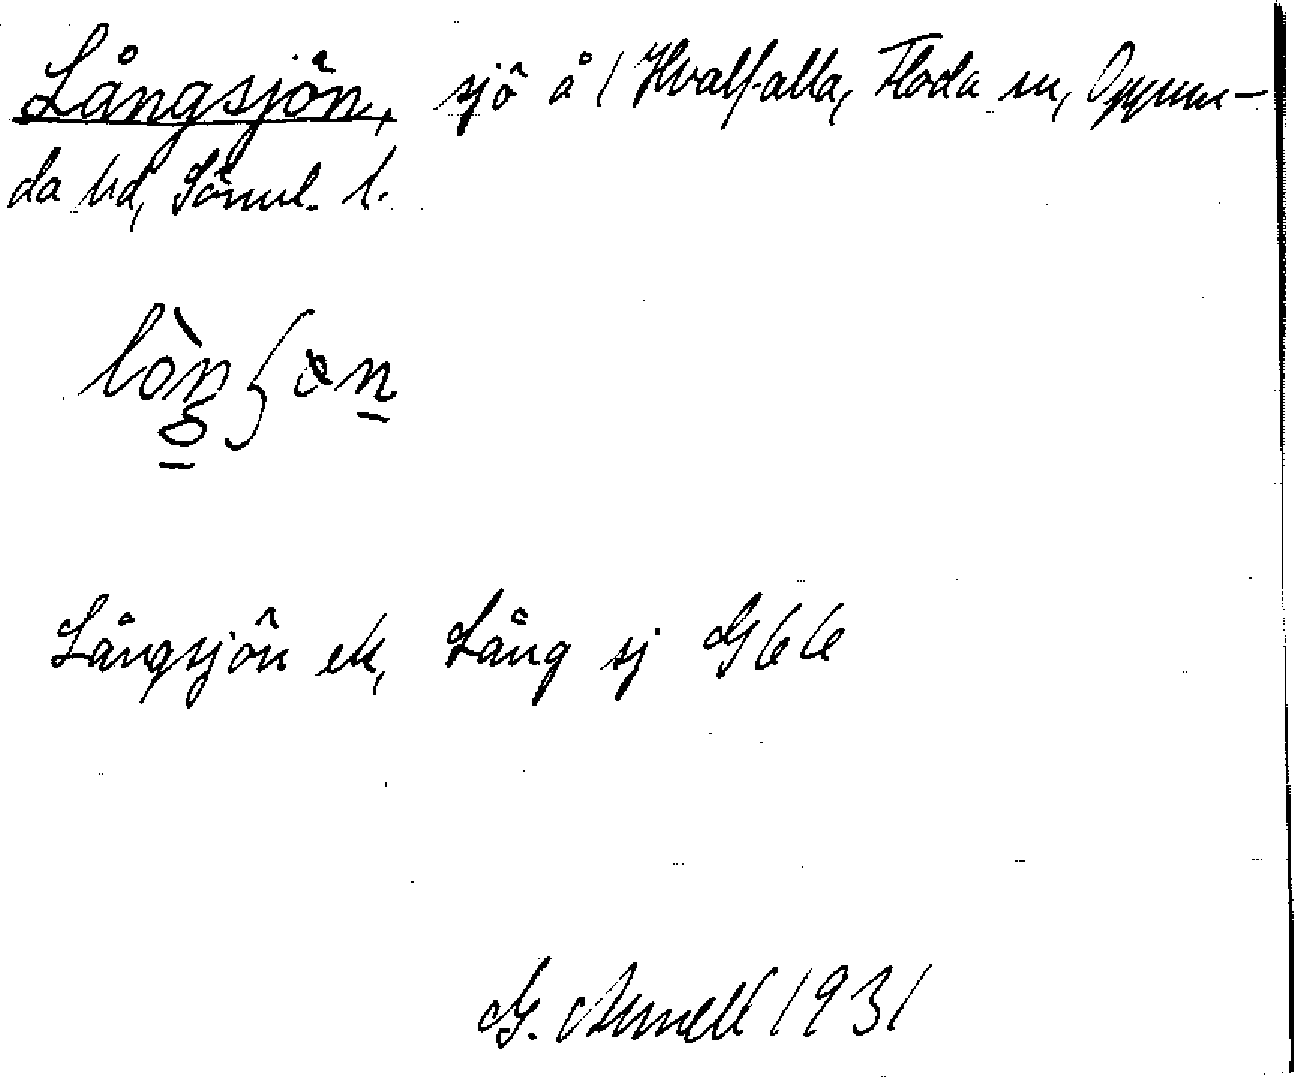 Långsjön, sjö å 1 Hvalfalla, Floda sn, Oppun-
da hd, Söml. l.
Långsjön ek, Lång sj G 66
G. Arnell 1931